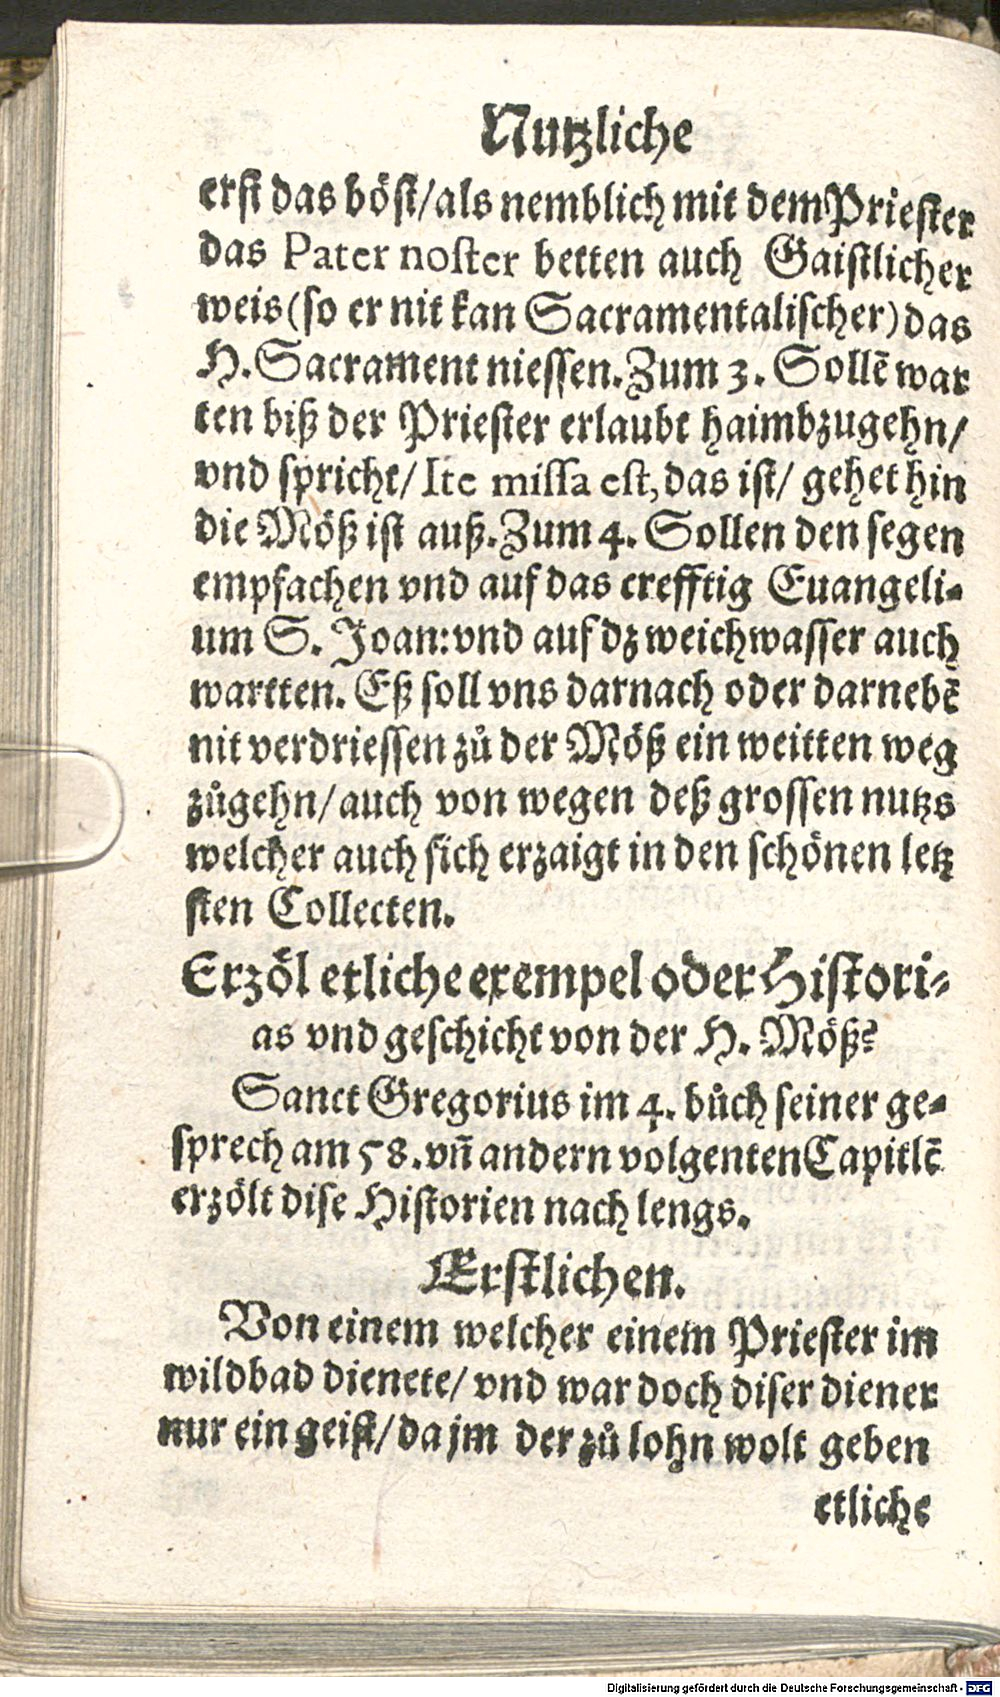 Nutzliche
erst das böst/als nemblich mit dem Priester
das Pater noster betten auch Gaistlicher
weis(so er nit kan Sacramentalischer)das
H.Sacrament niessen.Zum 3. Sollẽ war
ten biß der Priester erlaubt haimbzugehn/
vnd spricht/Ite missa est,das ist/ gehet hin
die Möß ist auß.Zum 4. Sollen den segen
empfachen vnd auf das crefftig Euangeli-
um S. Joan:vnd auf dz weichwasser auch
wartten. Eß soll vns darnach oder darnebẽ
nit verdriessen zů der Möß ein weitten weg
zůgehn/auch von wegen deß grossen nutzs
welcher auch sich erzaigt in den schönen letz
sten Collecten.
Erzöl etliche exempel oder Histori-
as vnd geschicht von der H. Möß?
Sanct Gregorius im 4. bůch seiner ge-
sprech am 58.vñ andern volgenten Capitlẽ
erzölt dise Historien nach lengs.
Erstlichen.
Von einem welcher einem Priester im
wildbad dienete/ vnd war doch diser diener
nur ein geist/da jm der zů lohn wolt geben
etliche
Digitalisierung gefördert durch die Deutsche Forschungsgemeinschaft - DFG